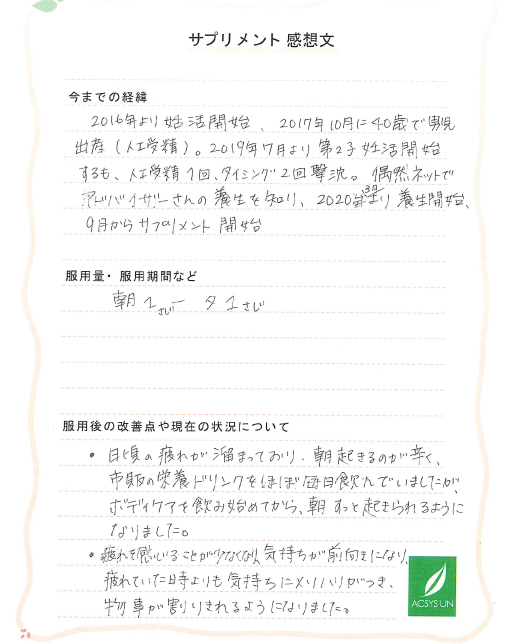 サプリメント 感想文
今までの経緯
2016年より妊活開始、2017年10月に40歳で男児
出産(人工受精)。2019年7月より第2子妊活開始
するも、人工受精1回、タイミング2回撃沈。偶然ネットで
アドバイザーさんの養生を知り、2020年3月より養生開始、
9月からサプリメント開始
服用量・服用期間など
朝1さじ ー 夕1さじ
服用後の改善点や現在の状況について
・日頃の疲れが溜まっており、朝起きるのが辛く、
市販の栄養ドリンクをほぼ毎日飲んでいましたが、
ボディケアを飲み始めてから、朝すっと起きられるように
なりました。
・疲れを感じることが少なくなり、気持ちが前向きになり、
疲れていた時よりも気持ちにメリハリがつき、
物事が割りきれるようになりました。
ACSYS UN